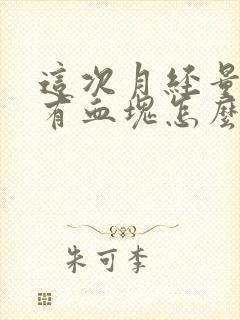 這次月經量
有血塊怎麼
朱可李